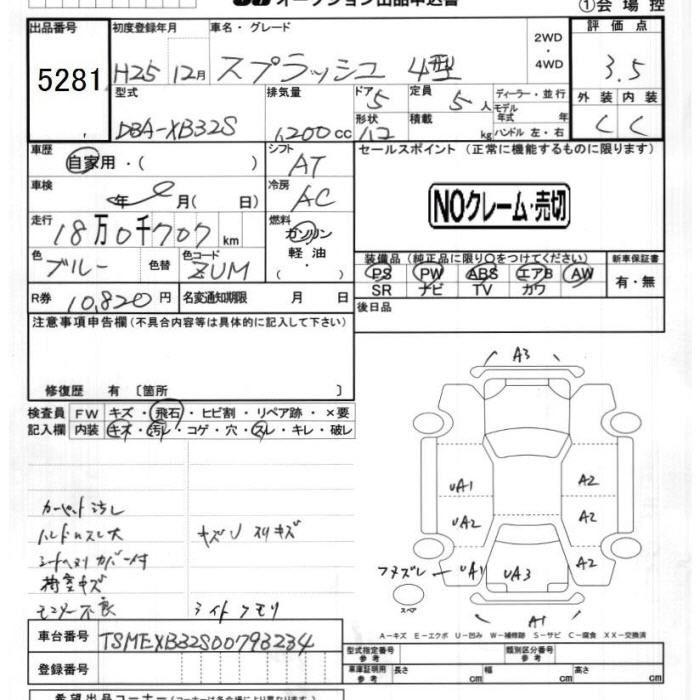 オークション出品申込書
①会場控
出品番号
5281
初度登録年月
H25 12月
車名・グレード
スプラッシュ 4型
2WD
・
4WD
評価点
3.5
型式
DBA-XB32S
排気量
1,200cc
ドア
5
形状
定員
5人
積載
kg
ディーラー・並行
モデル
年式 年
ハンドル 左・右
外装 内装
C C
車歴
自家用・( )
シフト
AT
セールスポイント (正常に機能するものに限ります)
NOクレーム・売切
車検
年 月( 日)
冷房
AC
走行
18万0千707km
燃料
ガソリン
軽油
( ・ )
色
ブルー
色替
色コード
ZUM
装備品(純正品に限り○をつけてください)
PS PW ABS エアB AW
SR ナビ TV カワ
新車保証書
有・無
R券 10,820円
名変通知期限 月 日
後日品
注意事項申告欄(不具合内容等は具体的に記入して下さい)
修復歴 有 〔箇所 〕
検査員
記入欄
FW キズ・飛石・ヒビ割・リペア跡・×要
内装 キズ・汚レ・コゲ・穴・スレ・キレ・破レ
カーペット汚し
ハンドルスレ大
キズリ スリキズ
シートヘタリ カバー付
荷室キズ
モニター不良
ライトクモリ
A3
UA1
A2
UA2
A2
フタズレ
UA1
UA3
A2
スペア
A1
A-キズ E-エクボ U-凹み W-補修跡 S-サビ C-腐食 XX-交換済
車台番号
TSMEXB32S00793234
登録番号
型式指定番号
参考
類別区分番号
参考
車庫証明用
参考
長さ cm
幅 cm
高さ cm
希望出品コーナー(コーナーは各会場により異なります)